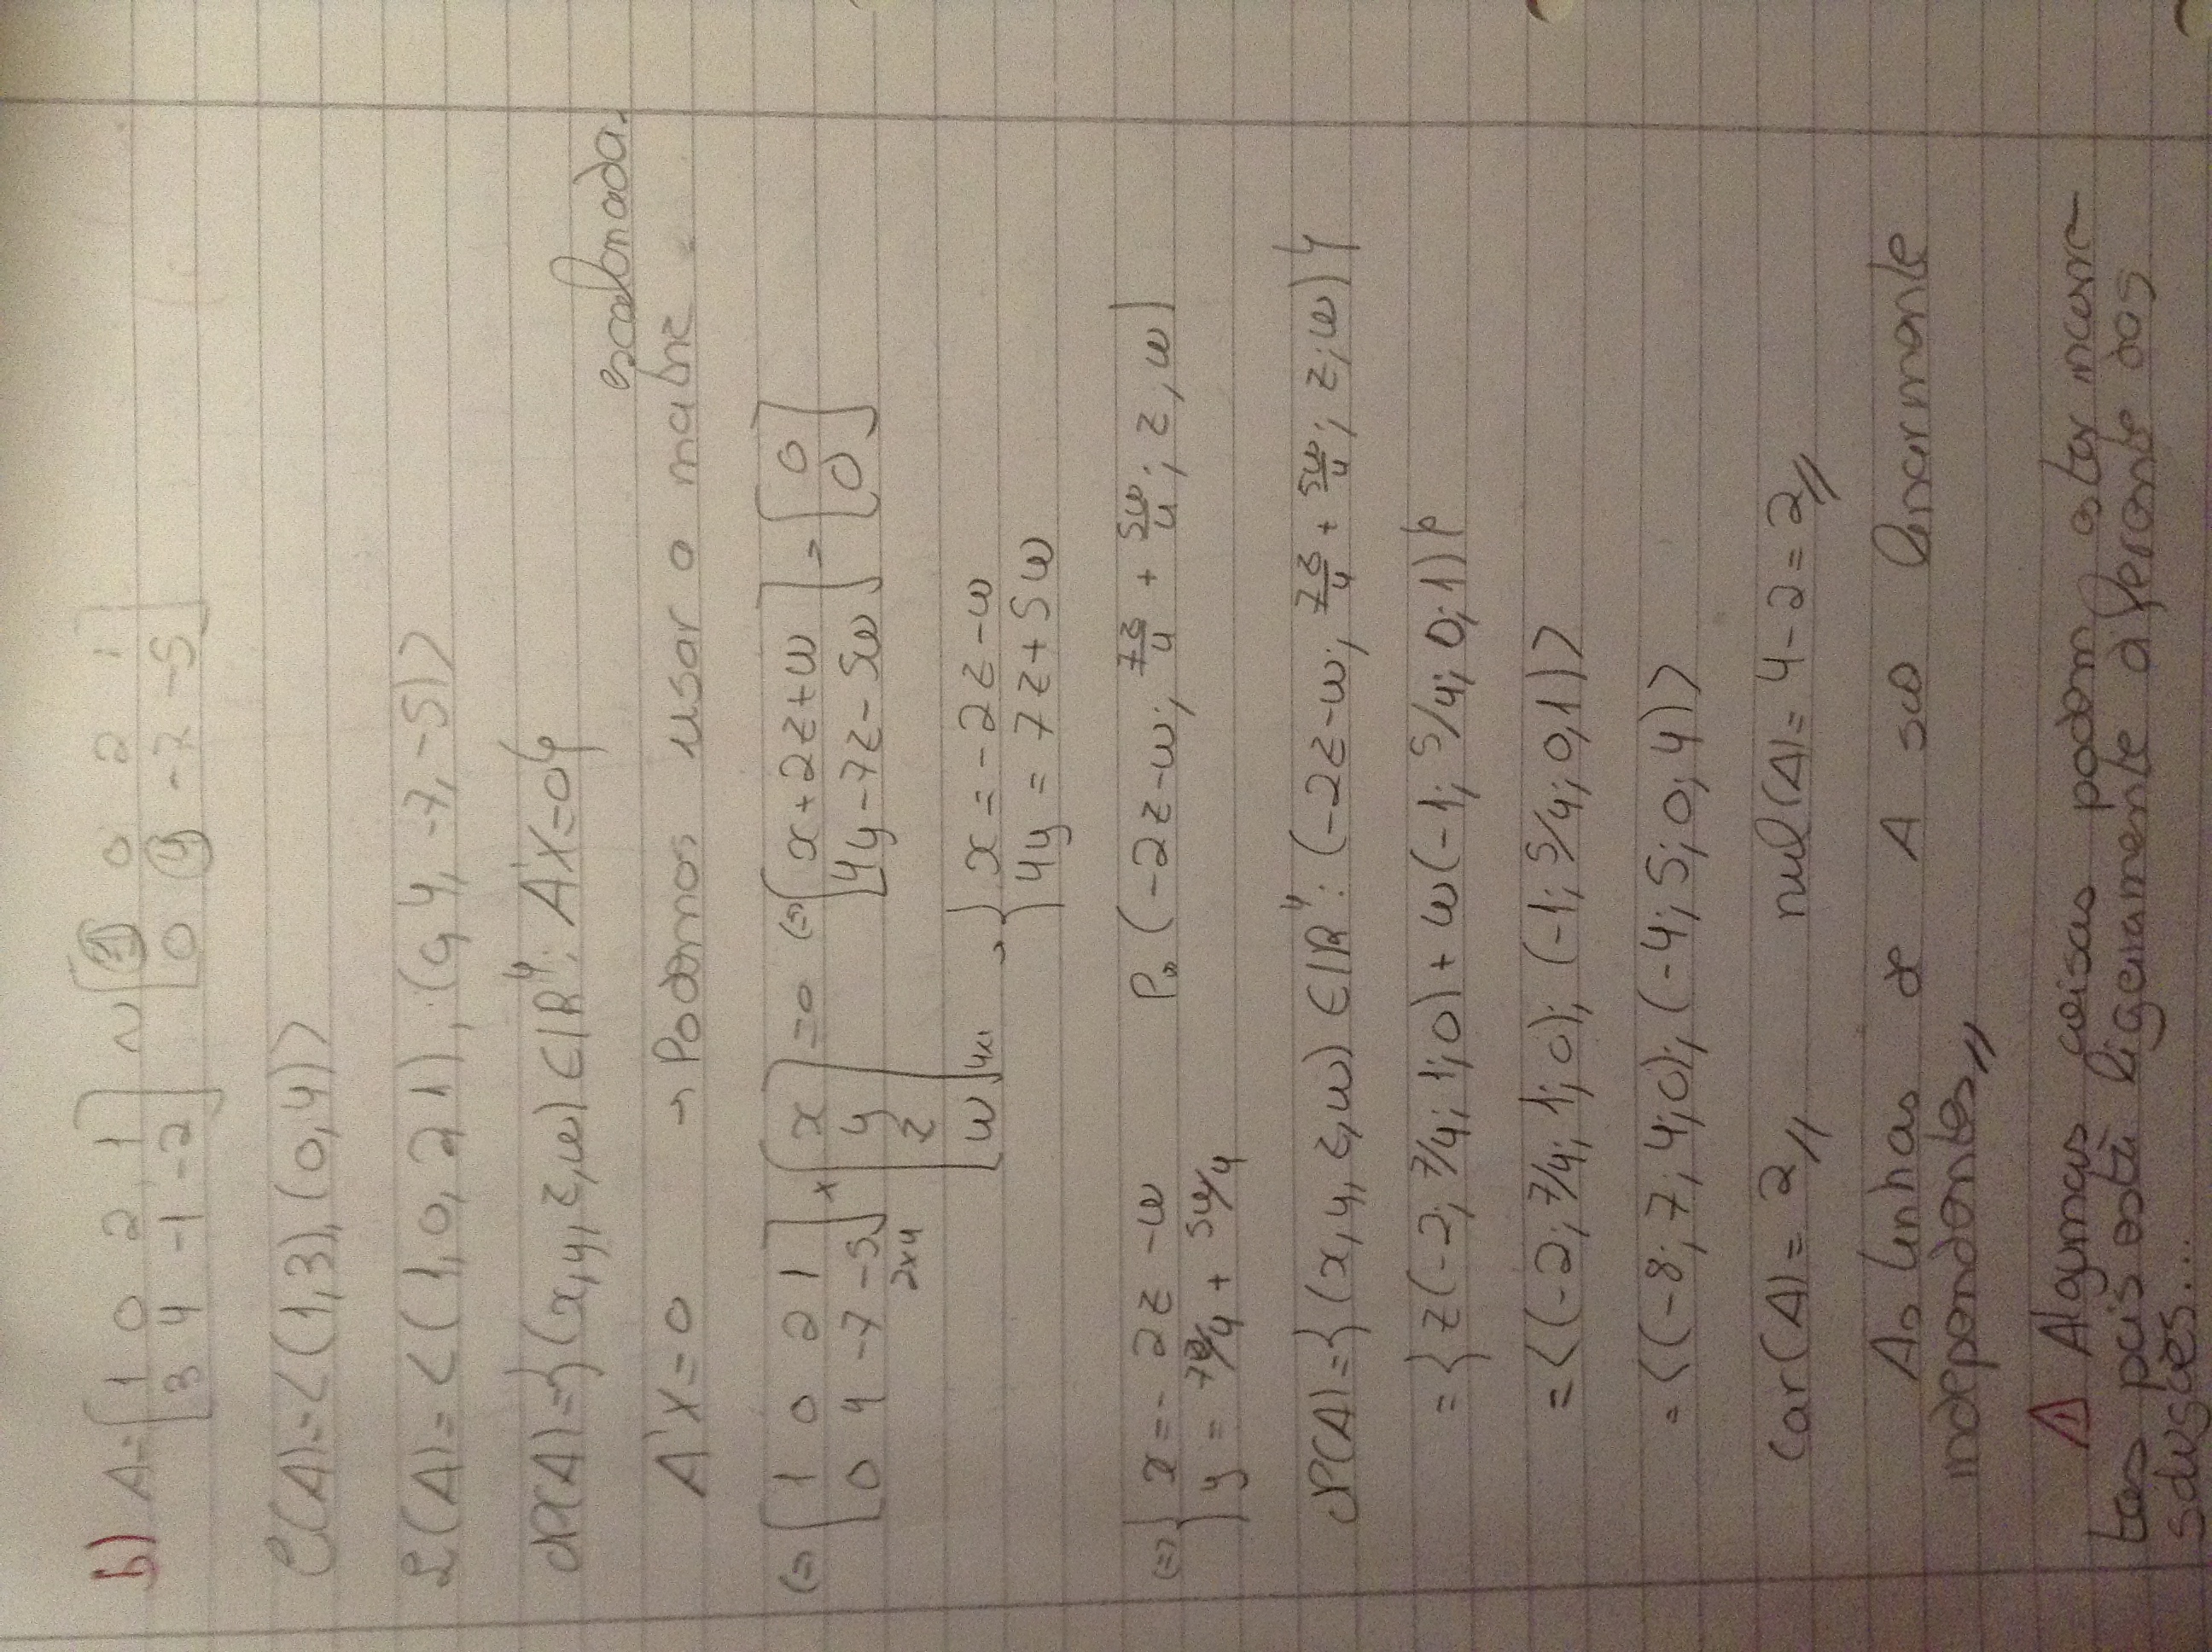 b) A = [1 0 2 1; 3 4 -1 -2] ~ [1 0 2 1; 0 4 -7 -5]
C(A) = <(1,3), (0,4)>
L(A) = <(1,0,2,1), (0,4,-7,-5)>
N(A) = {(x,y,z,w) ∈ IR⁴: A'X=0}
escalonada.
A'X=0 → Podemos usar a matriz
(=) [1 0 2 1; 0 4 -7 -5] 2x4 × [x; y; z; w] 4x1 = 0 (=) [x+2z+w; 4y-7z-5w] = [0; 0]
→ { x = -2z-w
4y = 7z+5w
(=) { x = -2z-w P. (-2z-w; 7z/4 + 5w/4; z, w)
y = 7z/4 + 5w/4
N(A) = {(x,y,z,w) ∈ IR⁴: (-2z-w; 7z/4 + 5w/4; z; w)}
= {z(-2; 7/4; 1; 0) + w(-1; 5/4; 0; 1)}
= <(-2; 7/4; 1; 0); (-1; 5/4; 0, 1)>
= <(-8; 7; 4; 0); (-4; 5; 0; 4)>
car(A) = 2// nul(A) = 4-2 = 2//
As linhas de A são linearmente
independentes//
⚠ Algumas coisas podem estar incorre-
tas pois está ligeiramente diferente das
soluções...